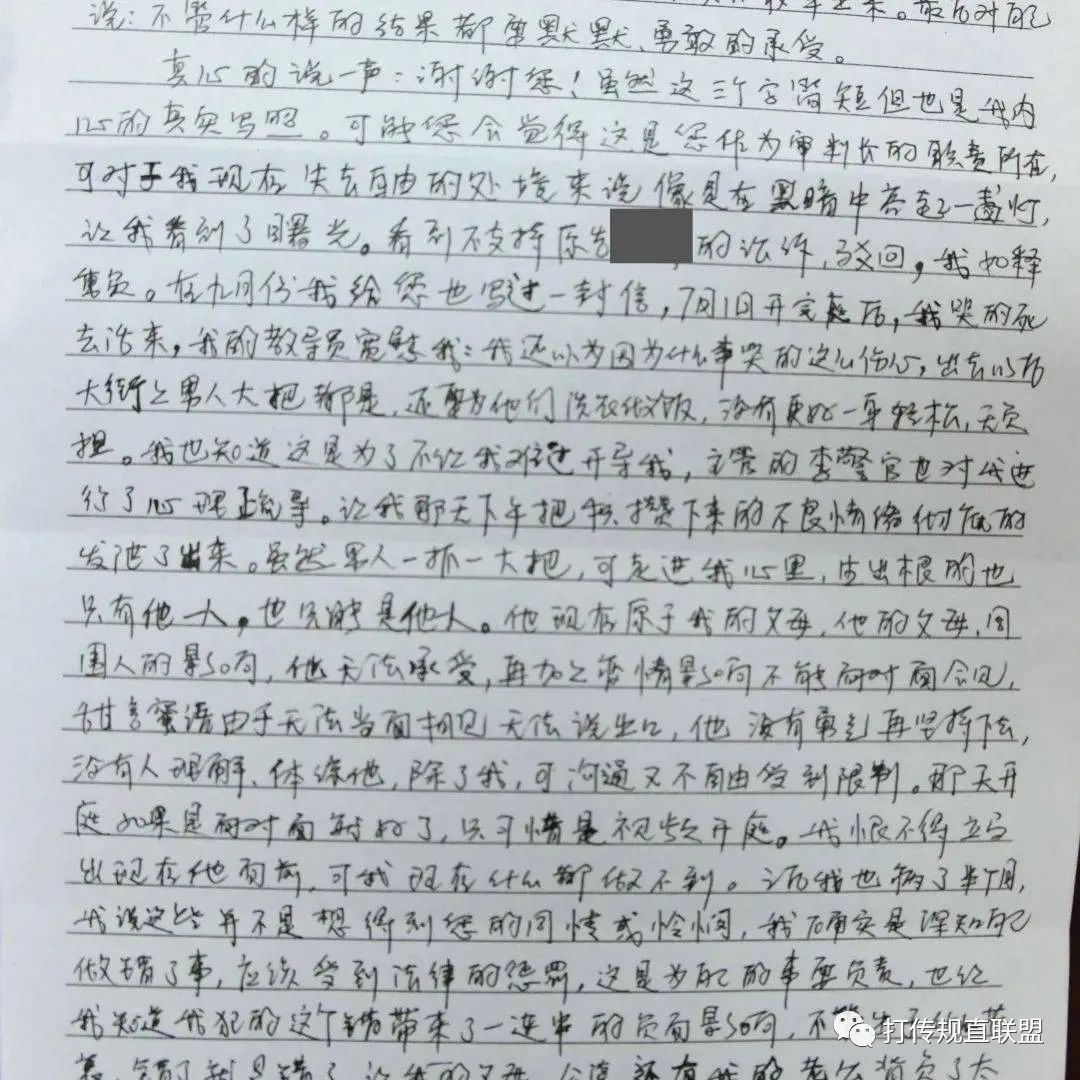 说：不管什么样的结果都要默默、勇敢的承受。
真心的说一声：谢谢您！虽然这三个字简短但也是我内
心的真实写照。可能您会觉得这是您作为审判长的职责所在，
可对于我现在失去自由的处境来说像是在黑暗中一盏灯，
让我看到了曙光。看到不支持原告的诉，驳回，我如释
重负。在九月份我给您也写过一封信，7月1日开完庭后，我哭的死
去活来，我的教导员宽慰我：我还以为因为什么事哭的这么伤心，出去以后
大街上男人大把都是，还要为他们洗衣做饭，没有更好一身轻松，无负
担。我也知道这是为了不让我难过开导我，主管的李警官也对我进
行了心理疏导。让我那天下午把积攒下来的不良情绪彻底的
发泄了出来。虽然男人一抓一大把，可走进我心里，的也
只有他一人。也只能是他人。他现在原于我的父母，他的父母，周
围人的影响，他无法承受，再加之疫情影响不能面对面会见，
甜言蜜语由于无法当面相见无法说出口，他没有勇气再坚持下去，
没有人理解、体谅他，除了我，可沟通又不自由受到限制。那天开
庭如果是面对面就好了，只可惜是视频开庭。我恨不得立马
出现在他面前，可我现在什么都做不到。之后我也病了半个月，
我说这些并不是想得到您的同情或怜悯，我确实是深知自己
做错了事，应该受到法律的惩罚，这是为自己的事要负责，也让
我知道我犯的这个错带来了一连串的负面影响，不
错了就是错了，让我的父母、公婆还有我的老公背负了太
打传规直联盟